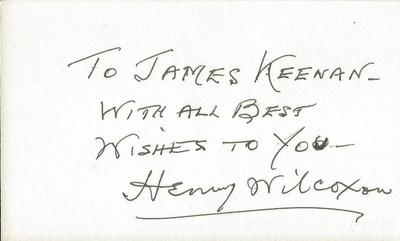 To James Keenan-
With all Best
Wishes to You-
Henry Wilcoxon